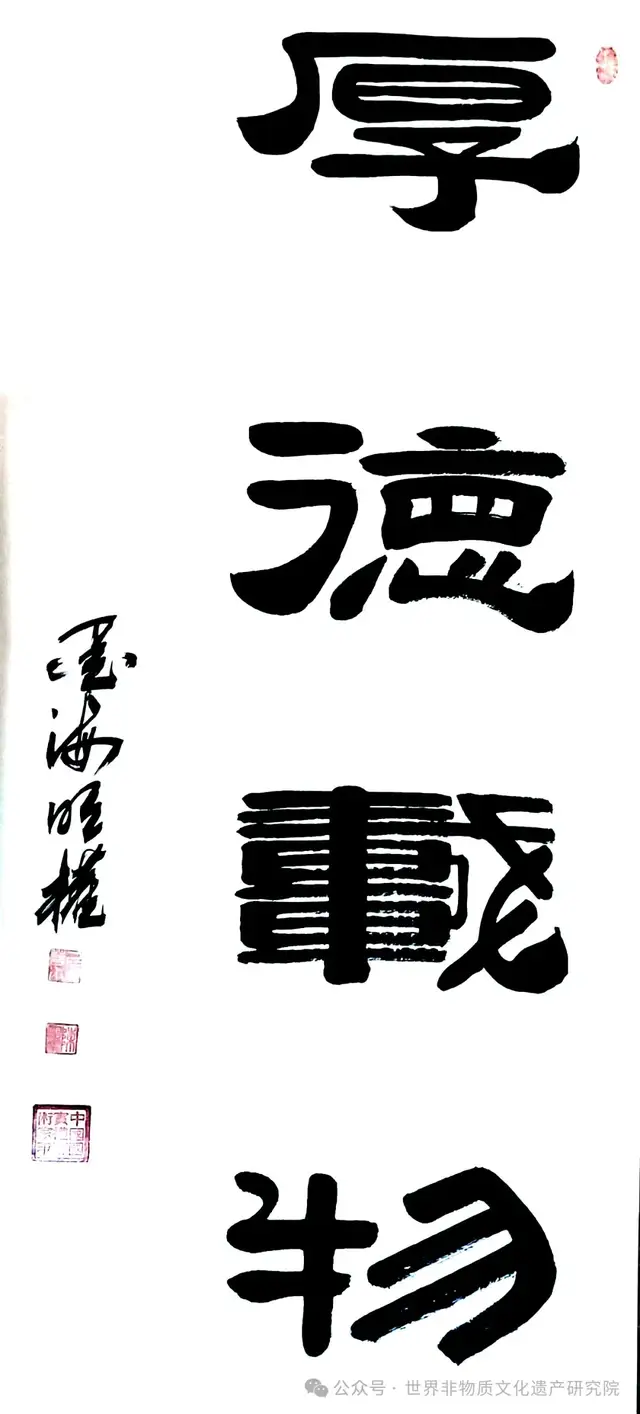 厚德載物
墨海旺權
公众号 · 世界非物质文化遗产研究院